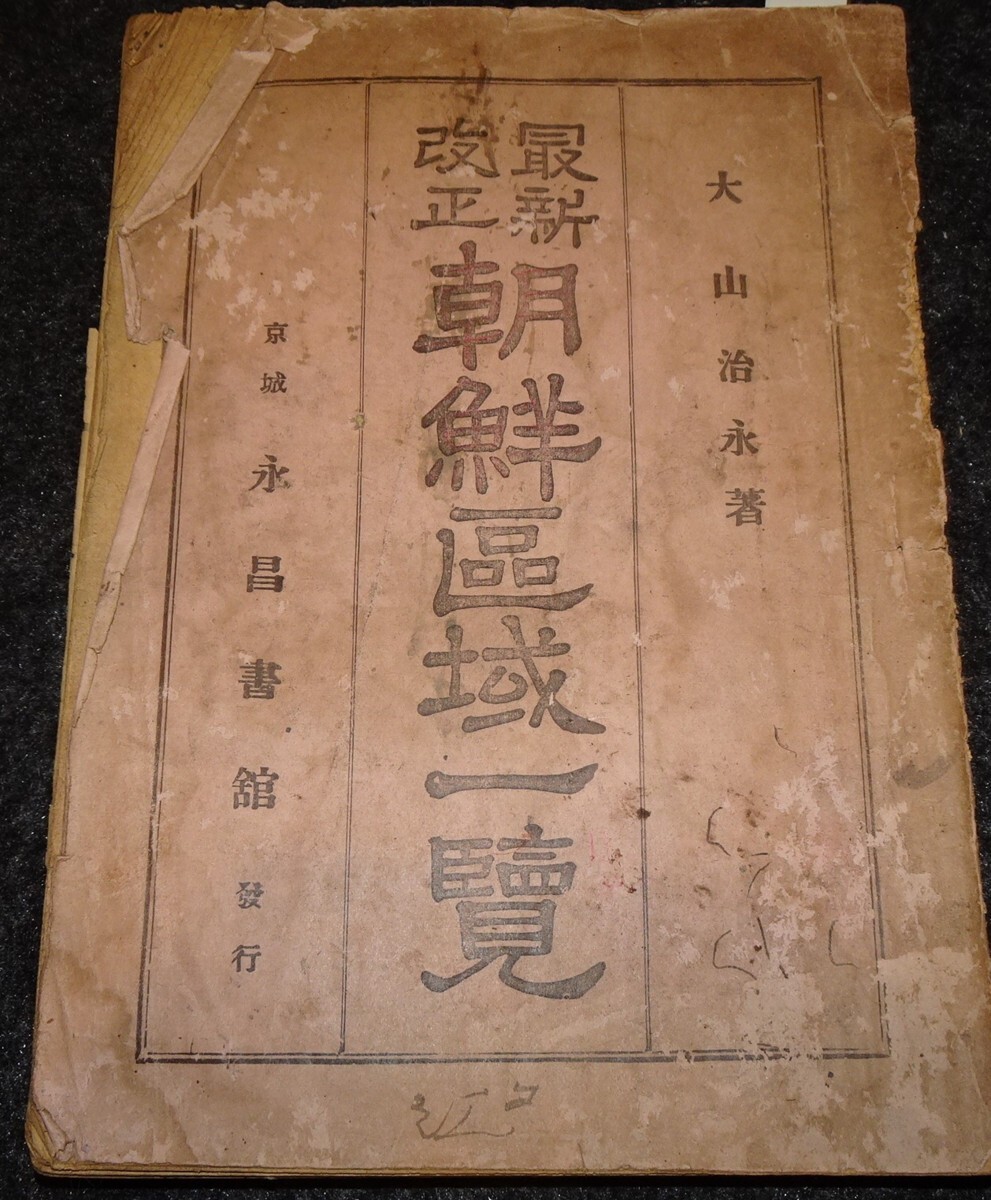 大山治永著
最新
改正
朝鮮區域一覽
京城 永昌書舘 發行